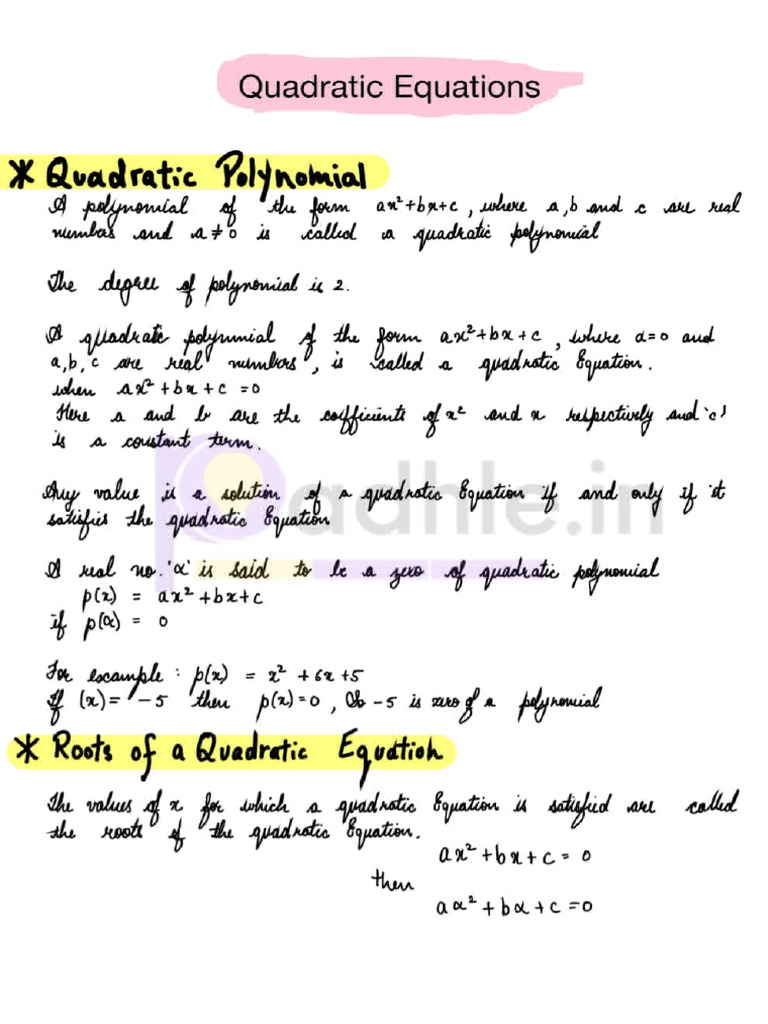 Quadratic Equations
* Quadratic Polynomial
A polynomial of the form ax²+bx+c, where a,b and c are real
numbers and a≠0 is called a quadratic polynomial
The degree of polynomial is 2.
A quadratic polynomial of the form ax²+bx+c, where a=0 and
a,b,c are real numbers, is called a quadratic Equation.
when ax²+bx+c=0
Here a and b are the coefficients of x² and x respectively and 'c'
is a constant term.
Any value is a solution of a quadratic Equation if and only if it
satisfies the quadratic Equation
adhle.in
A real no. 'α' is said to be a zero of quadratic polynomial
p(x) = ax²+bx+c
if p(α) = 0
For example : p(x) = x²+6x+5
If (x) = -5 then p(x)=0, So -5 is zero of a polynomial
* Roots of a Quadratic Equation
The values of x for which a quadratic Equation is satisfied are called
the roots of the quadratic Equation.
ax²+bx+c=0
then
aα²+bα+c=0